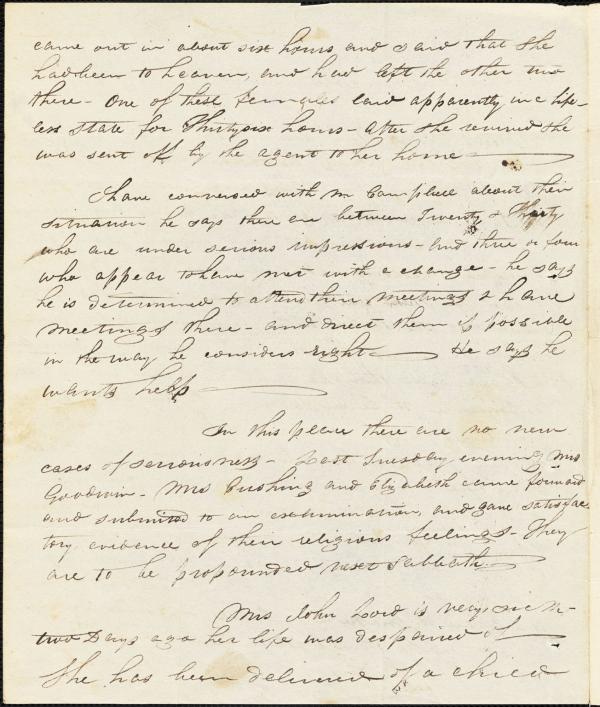 came out in about six hours and said that she
had been to heaven, and had left the other two
there - One of these females laid apparently in a life-
less state for Thirtysix hours - After she revived she
was sent off by the agent to her home
I have conversed with Mr Campbell about their
situation he says there are between Twenty & Thirty
who are under serious impressions - and three or four
who appear to have met with a change - he says
he is determined to attend their meetings & have
meetings there - and direct them if possible
in the way he considers right - He says he
wants help
In this place there are no new
cases of seriousness - Last Tuesday evening Mrs
Goodwin - Mrs Cushing and Elizabeth came forward
and submitted to an examination, and gave satisfac
tory evidence of their religious feelings - They
are to be propounded next Sabbath
Mrs John Lord is very sick -
two Days ago her life was despaired of
She has been delivered of a child